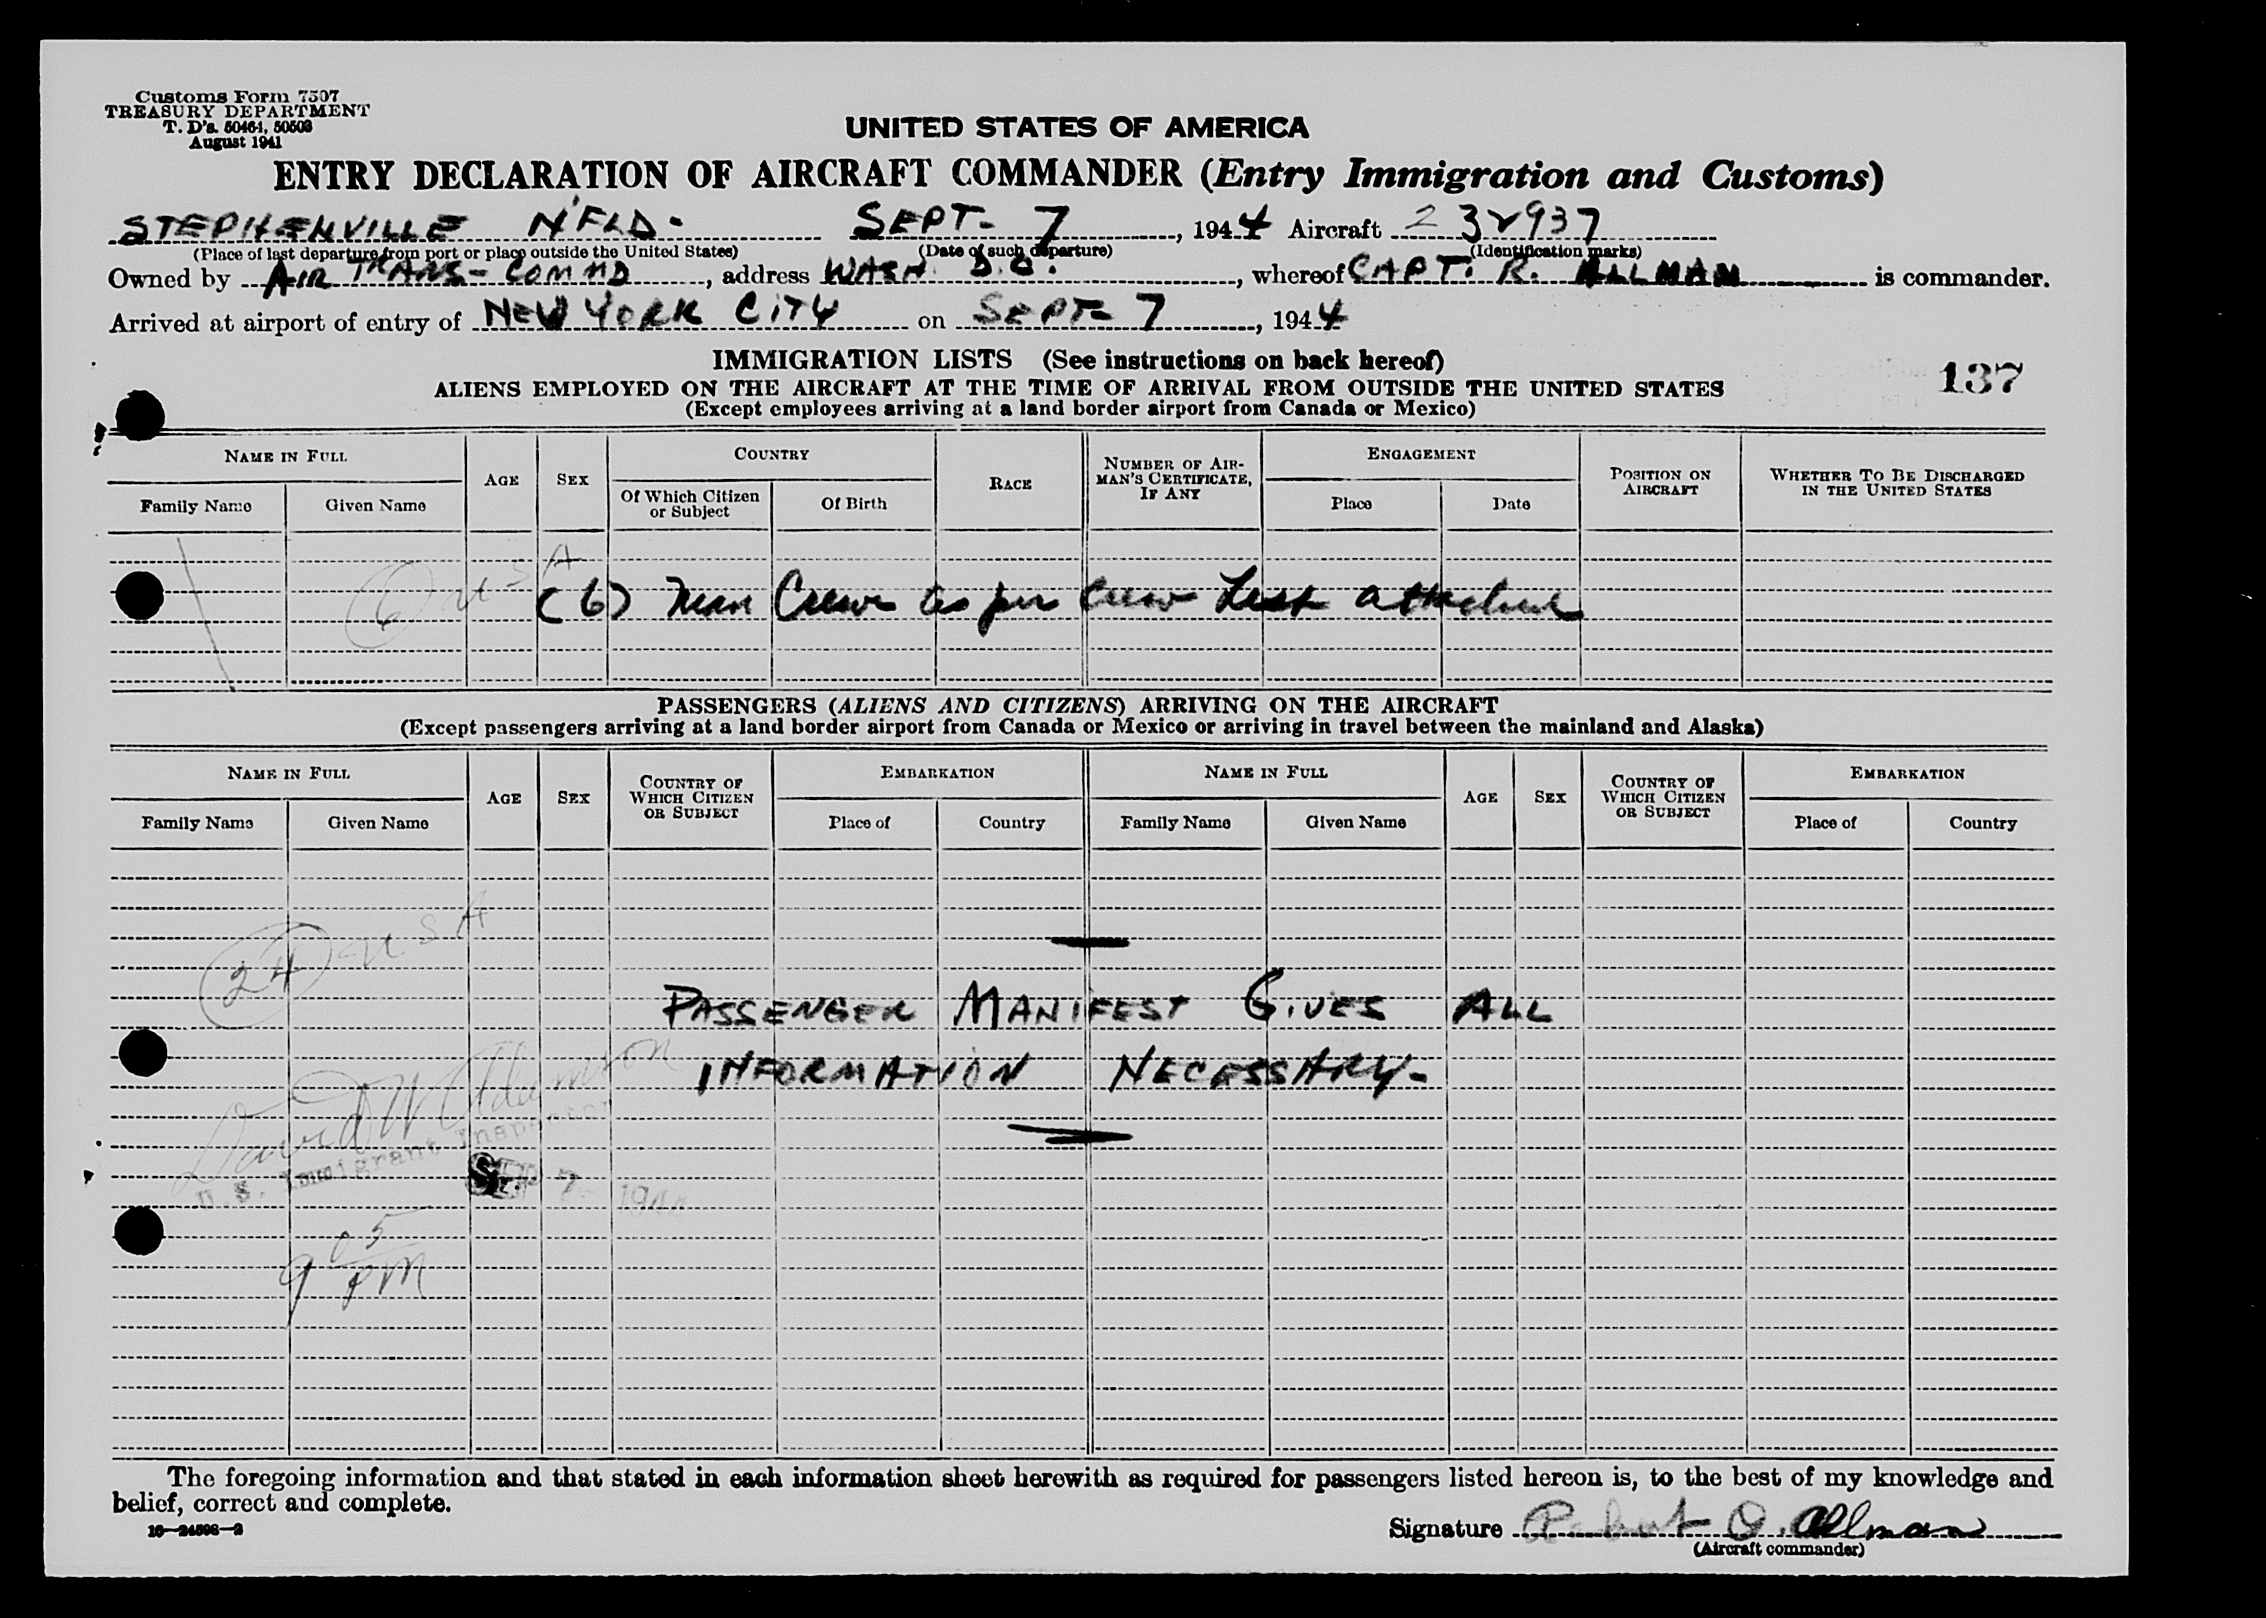 Customs Form 7507
TREASURY DEPARTMENT
T. D's. 50464, 50503
August 1941
UNITED STATES OF AMERICA
ENTRY DECLARATION OF AIRCRAFT COMMANDER (Entry Immigration and Customs)
STEPHENVILLE N'FLD. SEPT. 7, 1944 Aircraft 232937
(Place of last departure from port or place outside the United States) (Date of such departure) (Identification marks)
Owned by AIR TRANS-COMMD, address WASH. D.C., whereof CAPT. R. ALLMAN is commander.
Arrived at airport of entry of NEW YORK CITY on SEPT- 7, 1944
IMMIGRATION LISTS (See instructions on back hereof)
137
ALIENS EMPLOYED ON THE AIRCRAFT AT THE TIME OF ARRIVAL FROM OUTSIDE THE UNITED STATES
(Except employees arriving at a land border airport from Canada or Mexico)
NAME IN FULL
Family Name Given Name
AGE
SEX
COUNTRY
Of Which Citizen or Subject
Of Birth
RACE
NUMBER OF AIRMAN'S CERTIFICATE, IF ANY
ENGAGEMENT
Place Date
POSITION ON AIRCRAFT
WHETHER TO BE DISCHARGED IN THE UNITED STATES
6 USA
(6) Man Crew as per Crew List attached
PASSENGERS (ALIENS AND CITIZENS) ARRIVING ON THE AIRCRAFT
(Except passengers arriving at a land border airport from Canada or Mexico or arriving in travel between the mainland and Alaska)
NAME IN FULL
Family Name Given Name
AGE
SEX
COUNTRY OF WHICH CITIZEN OR SUBJECT
EMBARKATION
Place of Country
NAME IN FULL
Family Name Given Name
AGE
SEX
COUNTRY OF WHICH CITIZEN OR SUBJECT
EMBARKATION
Place of Country
24 - USA
PASSENGER MANIFEST GIVES ALL
INFORMATION NECESSARY-
David W Adamson
U.S. Immigrant Inspector
SEP 7 1944
9 05 PM
The foregoing information and that stated in each information sheet herewith as required for passengers listed hereon is, to the best of my knowledge and
belief, correct and complete.
16—24598-2
Signature Robert O. Allman
(Aircraft commander)